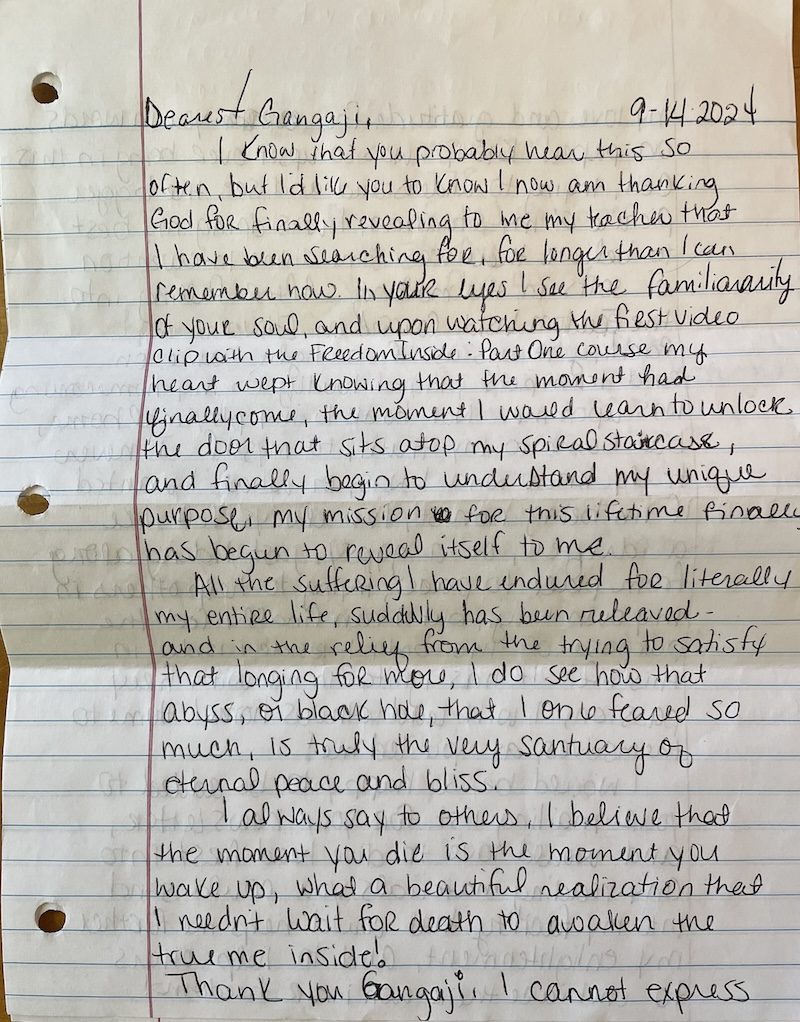 Dearest Gangaji, 9-14-2024
I know that you probably hear this so
often, but I'd like you to know I now am thanking
God for finally revealing to me my teacher that
I have been searching for, for longer than I can
remember now. In your eyes I see the familiararity
of your soul, and upon watching the first video
clip with the Freedom Inside: Part One course my
heart wept knowing that the moment had
finally come, the moment I would learn to unlock
the door that sits atop my spiral staircase,
and finally begin to understand my unique
purpose, my mission for this lifetime finally
has begun to reveal itself to me.
All the suffering I have endured for literally
my entire life, suddenly has been releaved -
and in the relief from the trying to satisfy
that longing for more, I do see how that
abyss, or black hole, that I once feared so
much, is truly the very santuary of
eternal peace and bliss.
I always say to others, I believe that
the moment you die is the moment you
wake up, what a beautiful realization that
I needn't wait for death to awaken the
true me inside!
Thank you Gangaji. I cannot express